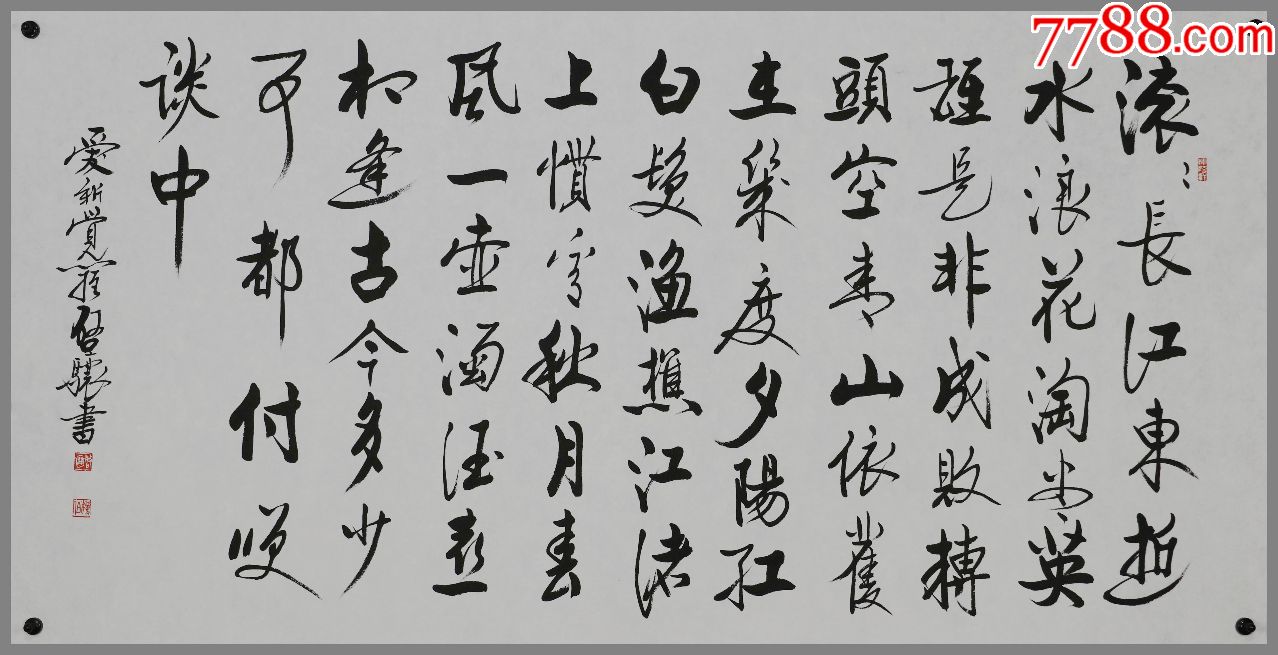 7788.com
滚滚長江東逝
水浪花淘尽英
雄是非成敗轉
頭空青山依舊
在幾度夕陽红
白髮渔樵江渚
上慣看秋月春
風一壶濁酒喜
相逢古今多少
事都付笑
談中
愛新覺羅启驤書